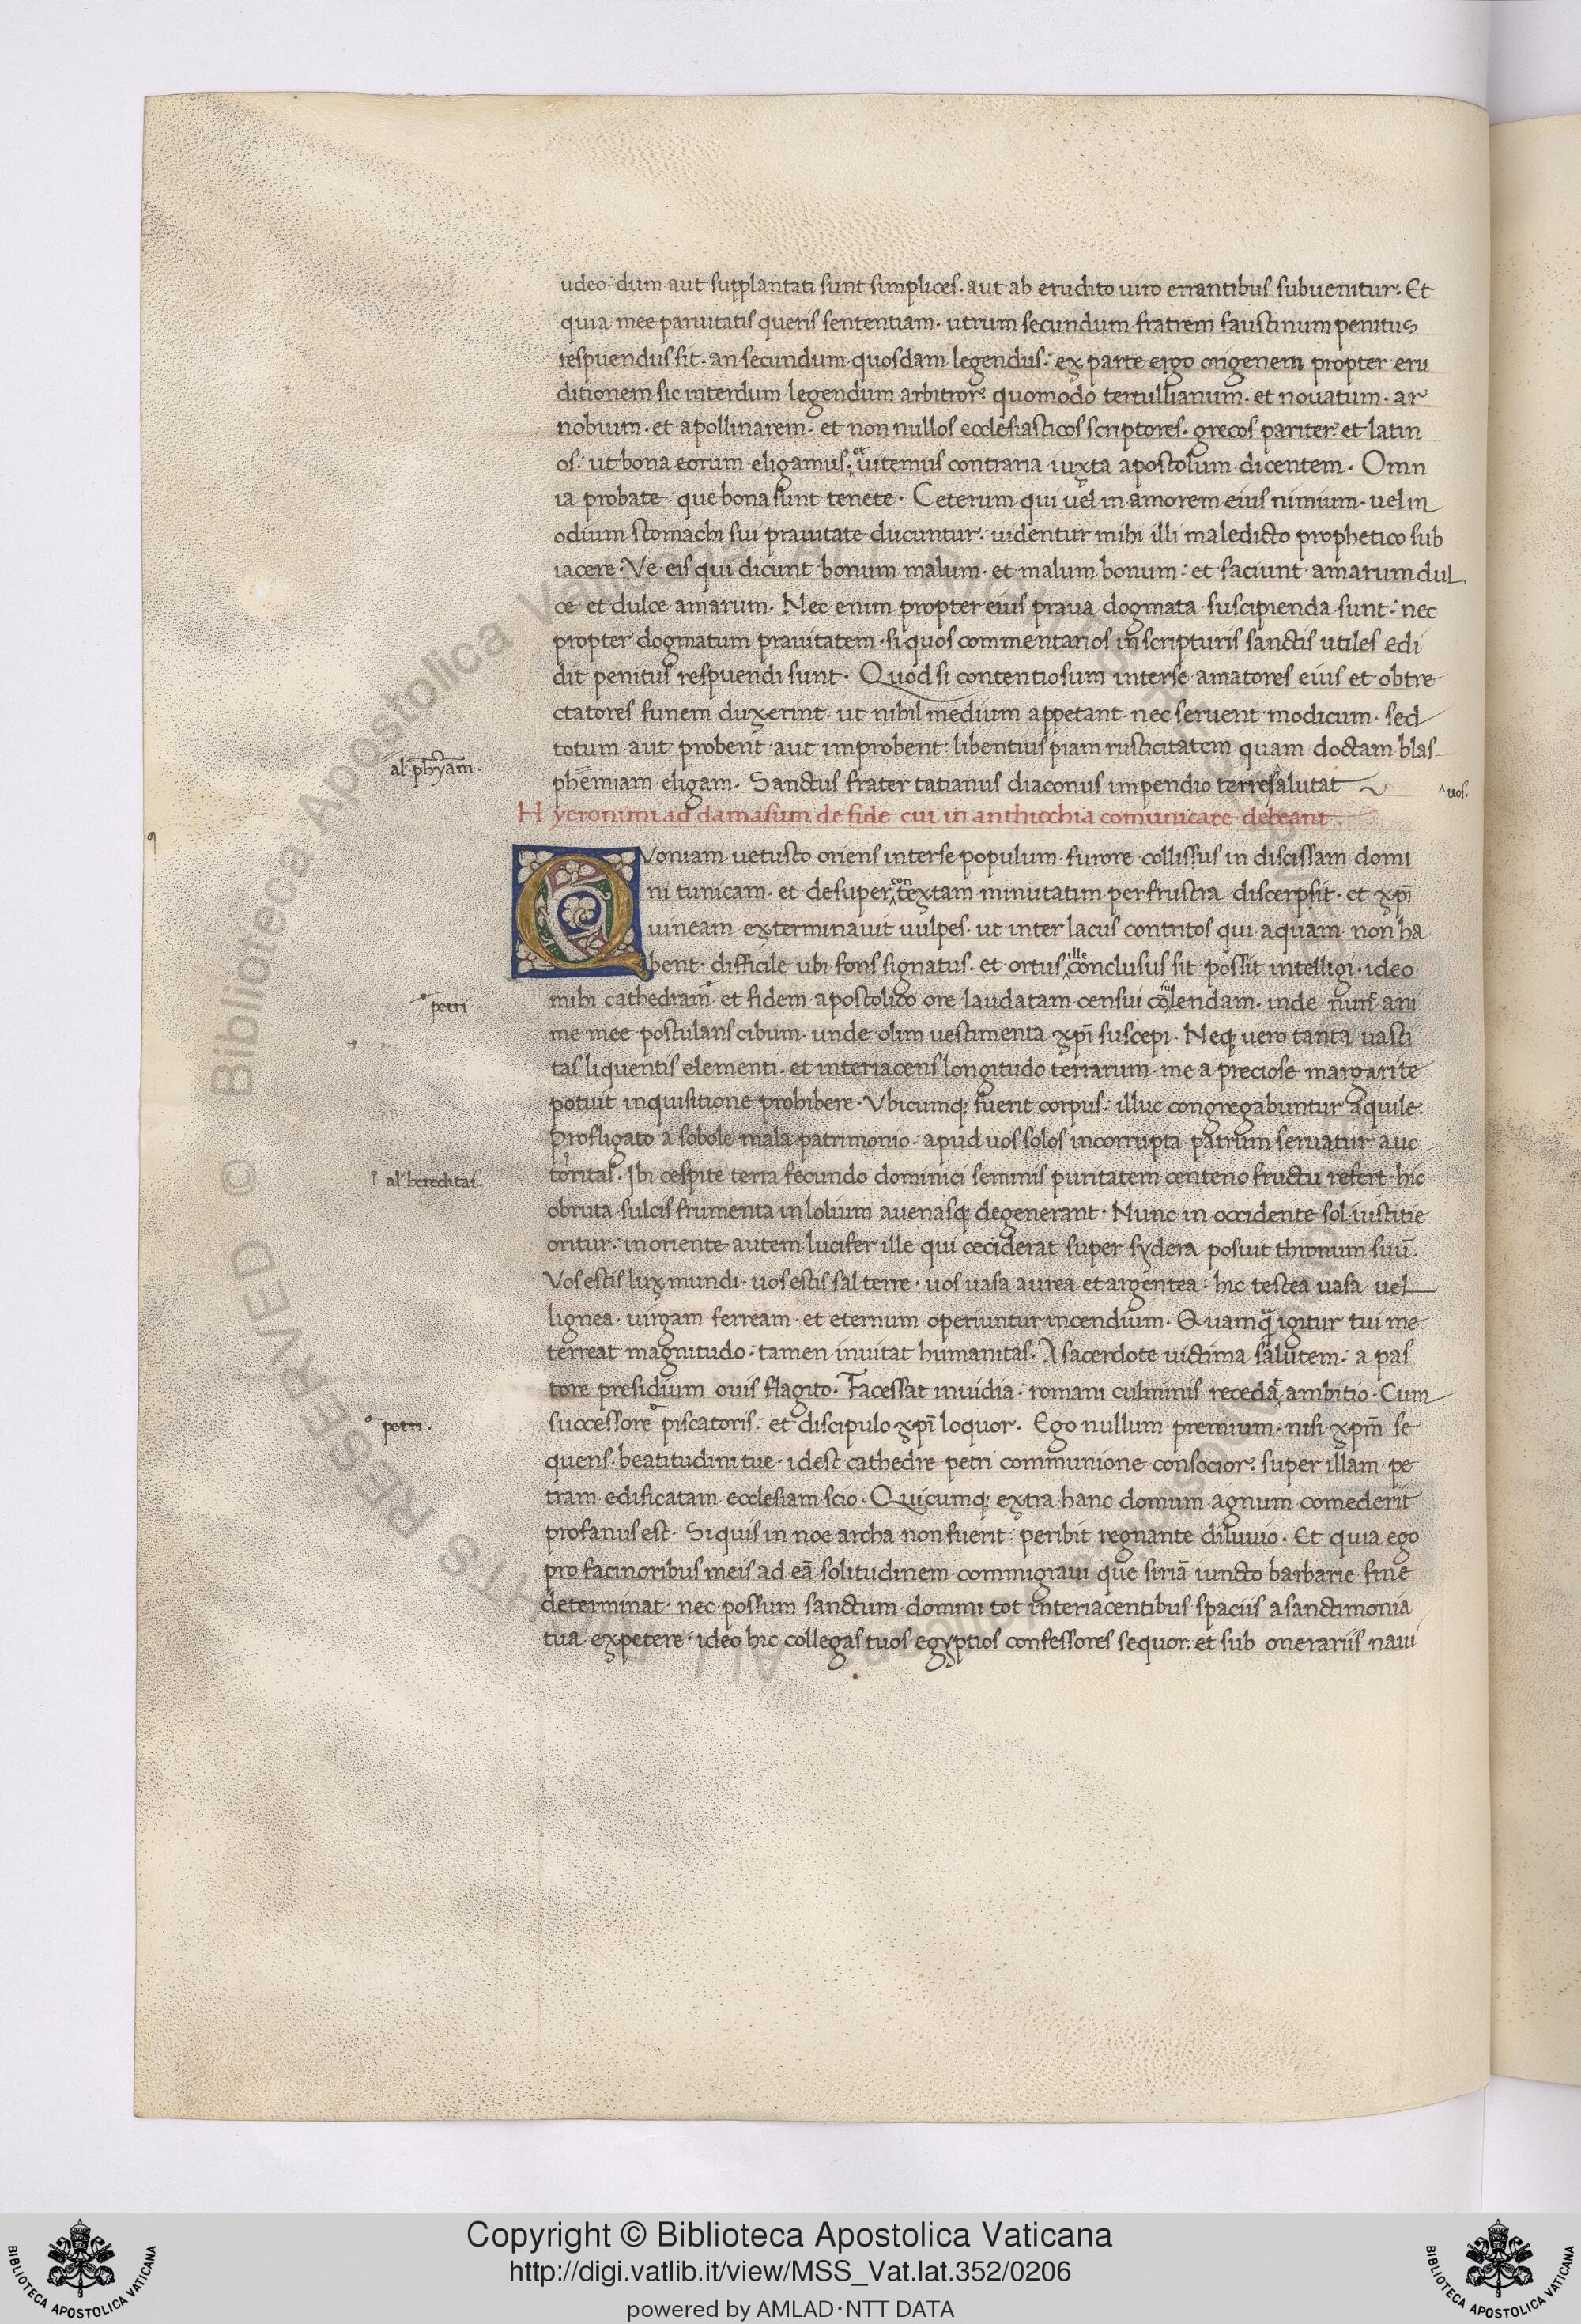 udeo· dum aut supplantati sunt simplices· aut ab erudito uiro errantibus subuenitur· Et
quia mee paruitatis queris sententiam· utrum secundum fratrem faustinum penitus
respuendus sit· an secundum quosdam legendus: ex parte ergo origenem propter eru
ditionem sic interdum legendum arbitror· quomodo tertullianum· et nouatum· ar
nobium· et apollinarem· et non nullos ecclesiasticos scriptores· grecos pariter et latin
os: ut bona eorum eligamus· et uitemus contraria iuxta apostolum dicentem· Omn
ia probate· que bona sunt tenete· Ceterum qui uel in amorem eius nimium· uel in
odium stomachi sui prauitate ducuntur: uidentur mihi illi maledicto prophetico sub
iacere: Ve eis qui dicunt bonum malum· et malum bonum: et faciunt amarum dul
ce et dulce amarum· Nec enim propter eius praua dogmata suscipienda sunt: nec
propter dogmatum prauitatem· si quos commentarios in scripturis sanctis utiles edi
dit penitus respuendi sunt· Quod si contentiosum inter se amatores eius et obtre
ctatores funem duxerint· ut nihil medium appetant· nec seruent modicum· sed
totum aut probent aut improbent: libentius piam rusticitatem quam doctam blas
al phryam·
phemiam eligam· Sanctus frater tatianus diaconus impendio terresalutat
uos·
Hyeronimi ad damasum de fide cui in anthiochia comunicare debeant
Quoniam uetusto oriens inter se populum furore collissus in discissam domi
ni tunicam· et desuper contextam minutatim per frustra discerpsit· et xpī
uineam exterminauit uulpes· ut inter lacus contritos qui aquam non ha
bent· difficile ubi fons signatus· et ortus ille conclusus sit possit intelligi· ideo
mihi cathedram· et fidem apostolico ore laudatam censui consulendam· inde nunc ani
petri
me mee postulans cibum· unde olim uestimenta xpī suscepi· Neq; uero tanta uasti
tas liquentis elementi· et interiacens longitudo terrarum· me a preciose margarite
potuit inquisitione prohibere· Vbicumq; fuerit corpus: illuc congregabuntur aquile·
Profligato a sobole mala patrimonio· apud uos solos incorrupta patrum seruatur auc
toritas· Ibi cespite terra fecundo dominici seminis puritatem centeno fructu refert· hic
al hereditas·
obruta sulcis frumenta in lolium auenasq; degenerant· Nunc in occidente sol iustitie
oritur: in oriente autem lucifer ille qui ceciderat super sydera posuit thronum suū·
Vos estis lux mundi· uos estis sal terre· uos uasa aurea et argentea: hic testea uasa uel
lignea· uirgam ferream· et eternum operiuntur incendium· Quamq̃ igitur tui me
terreat magnitudo: tamen inuitat humanitas· A sacerdote uictima salutem: a pas
tore presidium ouis flagito· Facessat inuidia: romani culminis recedat ambitio· Cum
successore piscatoris: et discipulo xpī loquor· Ego nullum premium· nisi xpm̄ se
petri·
quens· beatitudini tue· idest cathedre petri communione consocior: super illam pe
tram edificatam ecclesiam scio· Quicumq; extra hanc domum agnum comederit
profanus est· Si quis in noe archa non fuerit: peribit regnante diluuio· Et quia ego
pro facinoribus meis ad eā solitudinem commigraui que siriā iuncto barbarie fine
determinat· nec possum sanctum domini tot interiacentibus spaciis a sanctimonia
tua expetere· ideo hic collegas tuos egyptios confessores sequor: et sub onerariis naui
Copyright © Biblioteca Apostolica Vaticana
http://digi.vatlib.it/view/MSS_Vat.lat.352/0206
powered by AMLAD·NTT DATA
BIBLIOTECA APOSTOLICA VATICANA
BIBLIOTECA APOSTOLICA VATICANA